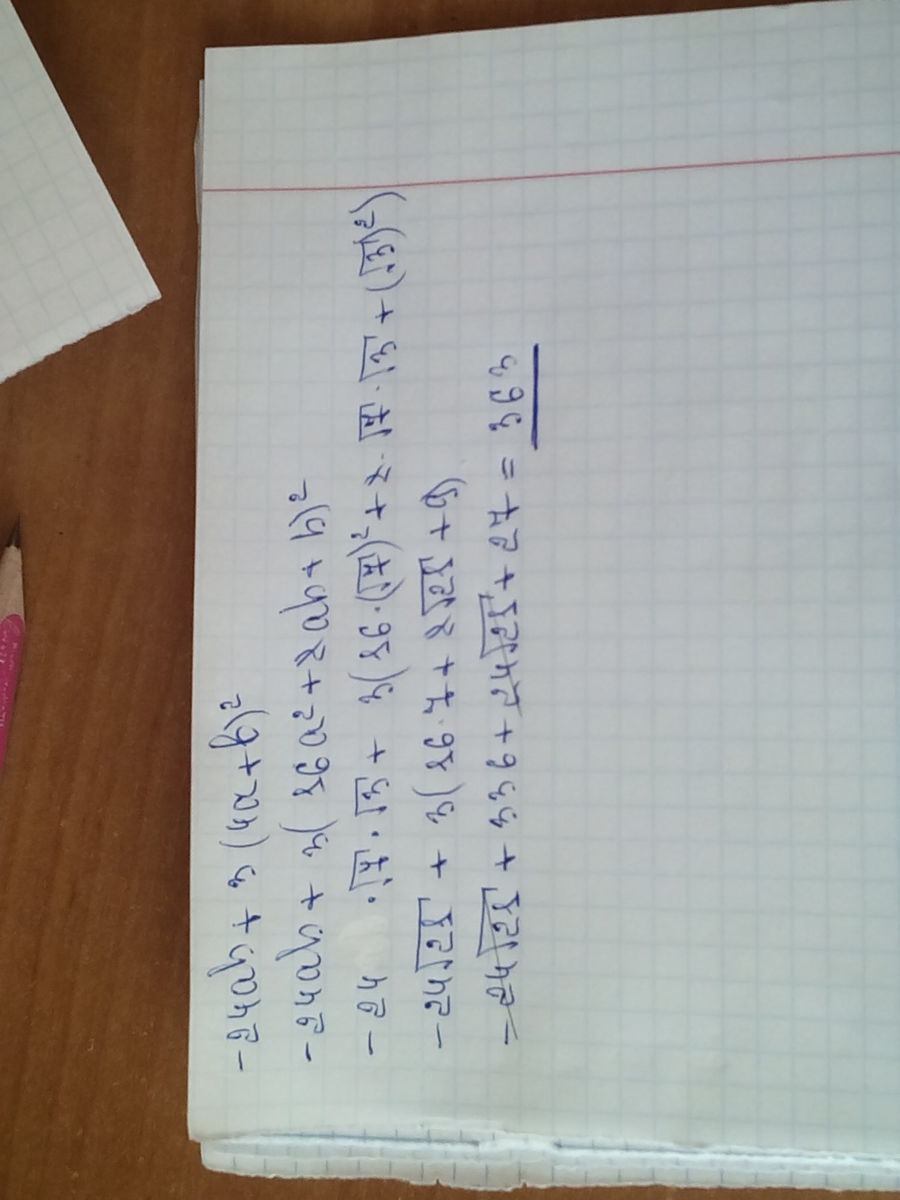 -24ab + 3(4a+b)²
-24ab + 3(16a²+8ab+b)²
-24·√7·√3 + 3(16·(√7)²+8·√7·√3+(√3)²)
-24√21 + 3(16·7+8√21+9)
-24√21 + 336 + 24√21 + 27 = 363